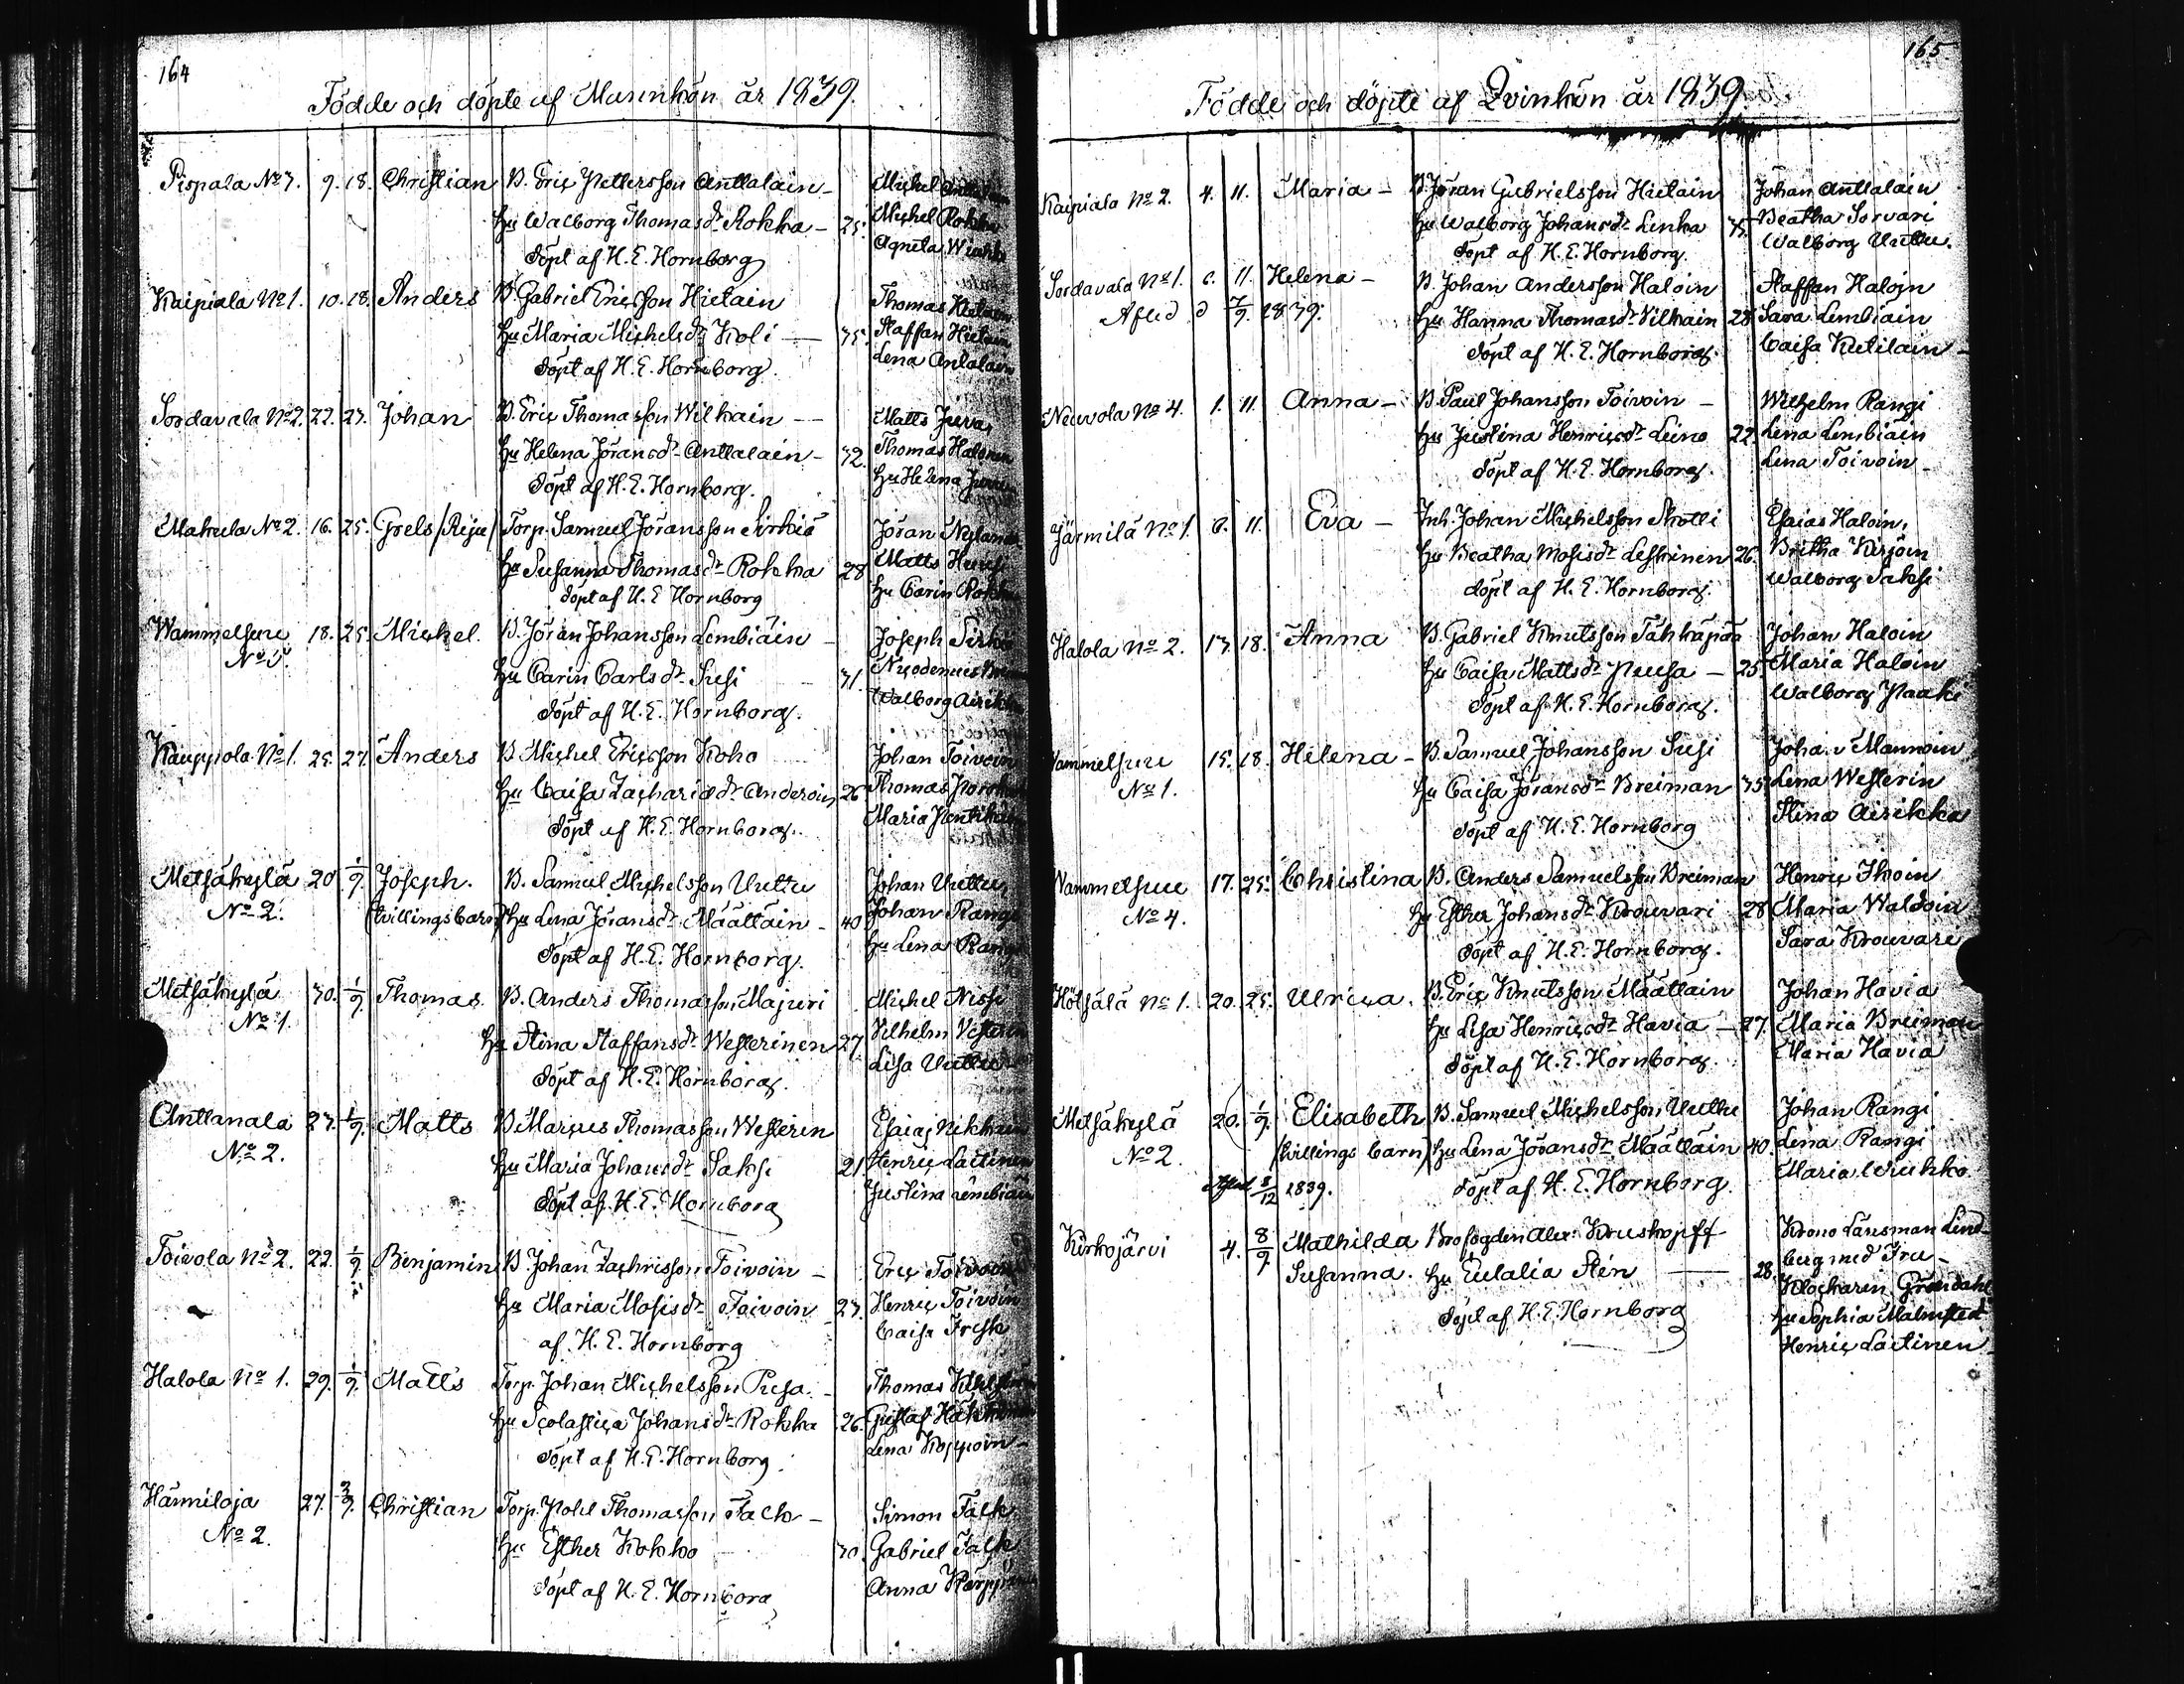 164
Födde och döpte af Mannkön år 1839.
Pispala No 3. 9. 18. Christian B. Eric Pettersson Anttalain - Michel
Hu Walborg Thomasdr Rokka - 35. Michel Rokka
döpt af H. E. Hornborg Agneta
Kaipiala No 1. 10. 18. Anders B. Gabriel Ericsson Hietain Thomas
Hu Maria Michelsdr Koli - 35. Staffan Hietain
döpt af H. E. Hornborg. Lena Antalain
Sordavala No 2. 22. 23. Johan B. Eric Thomasson Wilhain - Matts Juva
Hu Helena Jöransdr Anttalain - 32. Thomas Halonen
döpt af H. E. Hornborg. Hu Helena
Makula No 2. 16. 25. Grels /Rejer/ Torp. Samuel Jöransson Sirkiä Jöran
Hu Susanna Thomasdr Rokka 28 Matts
döpt af H. E Hornborg Hu Carin Rokka
Wammelsuu 18. 25. Michel. B. Jöran Johansson Lembiäin - Joseph
No 3. Hu Carin Carlsdr Susi 31. Nicodemus
döpt af H. E. Hornborg. Walborg Airikka
Kauppola No 1. 25. 27. Anders B Michel Ericsson Koho Johan Toivoin
Hu Caisa Zachariædr Anderoin 26 Thomas
döpt af H. E. Hornborg. Maria
Metsäkylä 20 1/9. Joseph. B. Samuel Michelsson Uuttu Johan Uuttu
No 2. (tvillingsbarn) Hu Lena Jöransdr Määttäin - 40 Johan Rangi
döpt af H. E. Hornborg. Hu Lena Rangi
Metsäkylä 30. 1/9. Thomas. B. Anders Thomasson Majuri Michel Nissi
No 1. Hu Stina Staffansdr Westerinen 27. Vilhelm
döpt af H. E. Hornborg. Lisa Uuttu
Anttanala 23. 1/9. Matts B Marcus Thomasson Westerin Esaias
No 2. Hu Maria Johansdr Saksi 21 Henric Laitinen
döpt af H. E. Hornborg Justina Lembiäin
Toivola No 2. 22. 1/9. Benjamin B. Johan Zachrisson Toivoin - Eric Toivoin
Hu Maria Mosisdr Toivoin 23. Henric Toivoin
af H. E. Hornborg Caisa Frisk
Halola No 1. 29. 1/9. Matts Torp. Johan Michelsson Pusa - Thomas
Hu Scolastica Johansdr Rokka 26. Gustaf
döpt af H. E. Hornborg. Lena Koppoin -
Hännilaja 27. 3/9. Christian Torp. Pohl Thomasson Falck - Simon Falck
No 2. Hu Esther Kokko 30. Gabriel Falck
döpt af H. E. Hornborg Anna
165
Födde och döpte af Qvinkön år 1839
Kaipiala No 2. 4. 11. Maria - B. Jöran Gabrielsson Hietain Johan Anttalain
Hu Walborg Johansdr Linka 35. Beatha Sorvari
döpt af H. E. Hornborg. Walborg Uuttu.
Sordavala No 1. 6. 11. Helena - B. Johan Andersson Haloin Staffan Haloin
Afled d 7/9. 1839. Hu Hanna Thomasdr Vilhain 28 Sara Lembiäin
döpt af H. E. Hornborg. Caisa Kutilain -
Neuvola No 4. 1. 11. Anna - B Paul Johansson Toivoin - Wilhelm Rangi
Hu Justina Henricsdr Leino 22. Lena Lembiäin
döpt af H. E. Hornborg. Lena Toivoin -
Järmilä No 1. 6. 11. Eva - Inh. Johan Michelsson Skotti Esaias Haloin,
Hu Beatha Mosisdr Leskinen 26. Britha Kirjoin
döpt af H. E. Hornborg. Walborg Saksi
Halola No 2. 13. 18. Anna B. Gabriel Knutsson Tähkäpää Johan Haloin
Hu Caisa Mattsdr Peusa - 25. Maria Haloin
döpt af H. E. Hornborg. Walborg Paaki
Wammelsuu 15. 18. Helena - B. Samuel Johansson Susi Johan Mannoin
No 1. Hu Caisa Jöransdr Breiman 35. Lena Westerin
döpt af H. E. Hornborg Stina Airikka
Wammelsuu 17. 25. Christina B. Anders Samuelsson Breiman Henric Ihoin
No 4. Hu Esther Johansdr Krouvari 28 Maria Waldoin
döpt af H. E. Hornborg. Sara Krouvari
Hötsälä No 1. 20. 25. Ulrica. B. Eric Knutsson Määttäin Johan Havia
Hu Lisa Henricsdr Havia - 27. Maria Breiman
döpt af H. E. Hornborg. Maria Havia
Metsäkylä 20. 1/9. Elisabeth B. Samuel Michelsson Uuttu Johan Rangi
No 2. (tvillings barn) Hu Lena Jöransdr Määttäin 40. Lena Rangi
Afled 8/12 1839. döpt af H. E. Hornborg. Maria Wiukko
Kirkojärvi 4. 8/9. Mathilda Krofogden Alex: Kruskopff Krono Länsman Lind-
Susanna. Hu Eulalia Sten 28. berg med Fru -
döpt af H. E. Hornborg Klockaren Gröndahl
Hu Sophia Malmsted
Henric Laitinen -